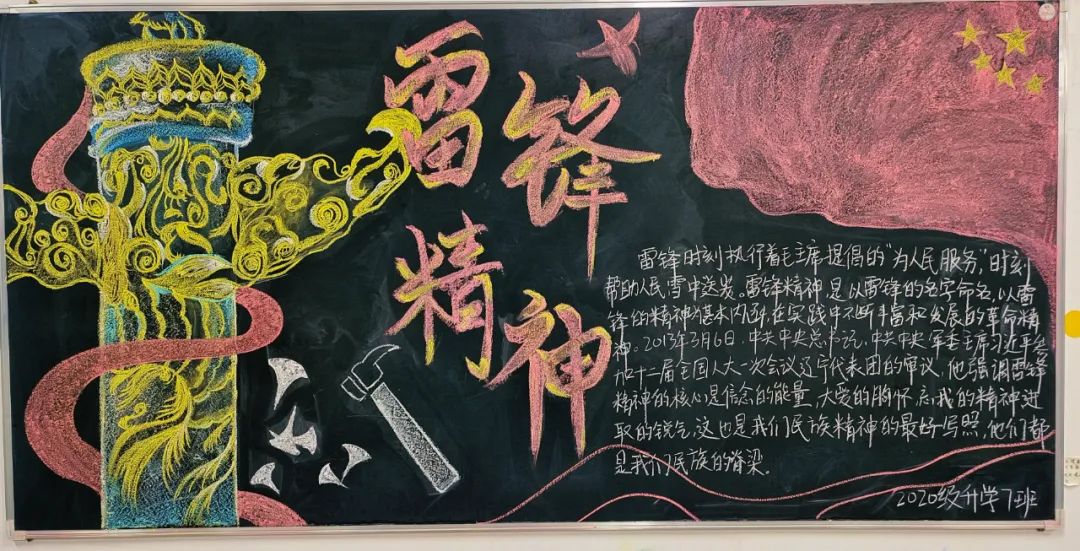 雷锋
精神
雷锋时刻执行着毛主席提倡的“为人民服务,”时刻
帮助人民雪中送炭。雷锋精神是以雷锋的名字命名,以雷
锋的精神为基本内涵,在实践中不断丰富和发展的革命精
神。2013年3月6日,中共中央总书记,中共中央军委主席习近平参
加十二届全国人大一次会议辽宁代表团的审议,他强调雷锋
精神的核心是信念的能量,大爱的胸怀,忘我的精神,进
取的锐气,这也是我们民族精神的最好写照,他们都
是我们民族的脊梁。
2020级升学7班